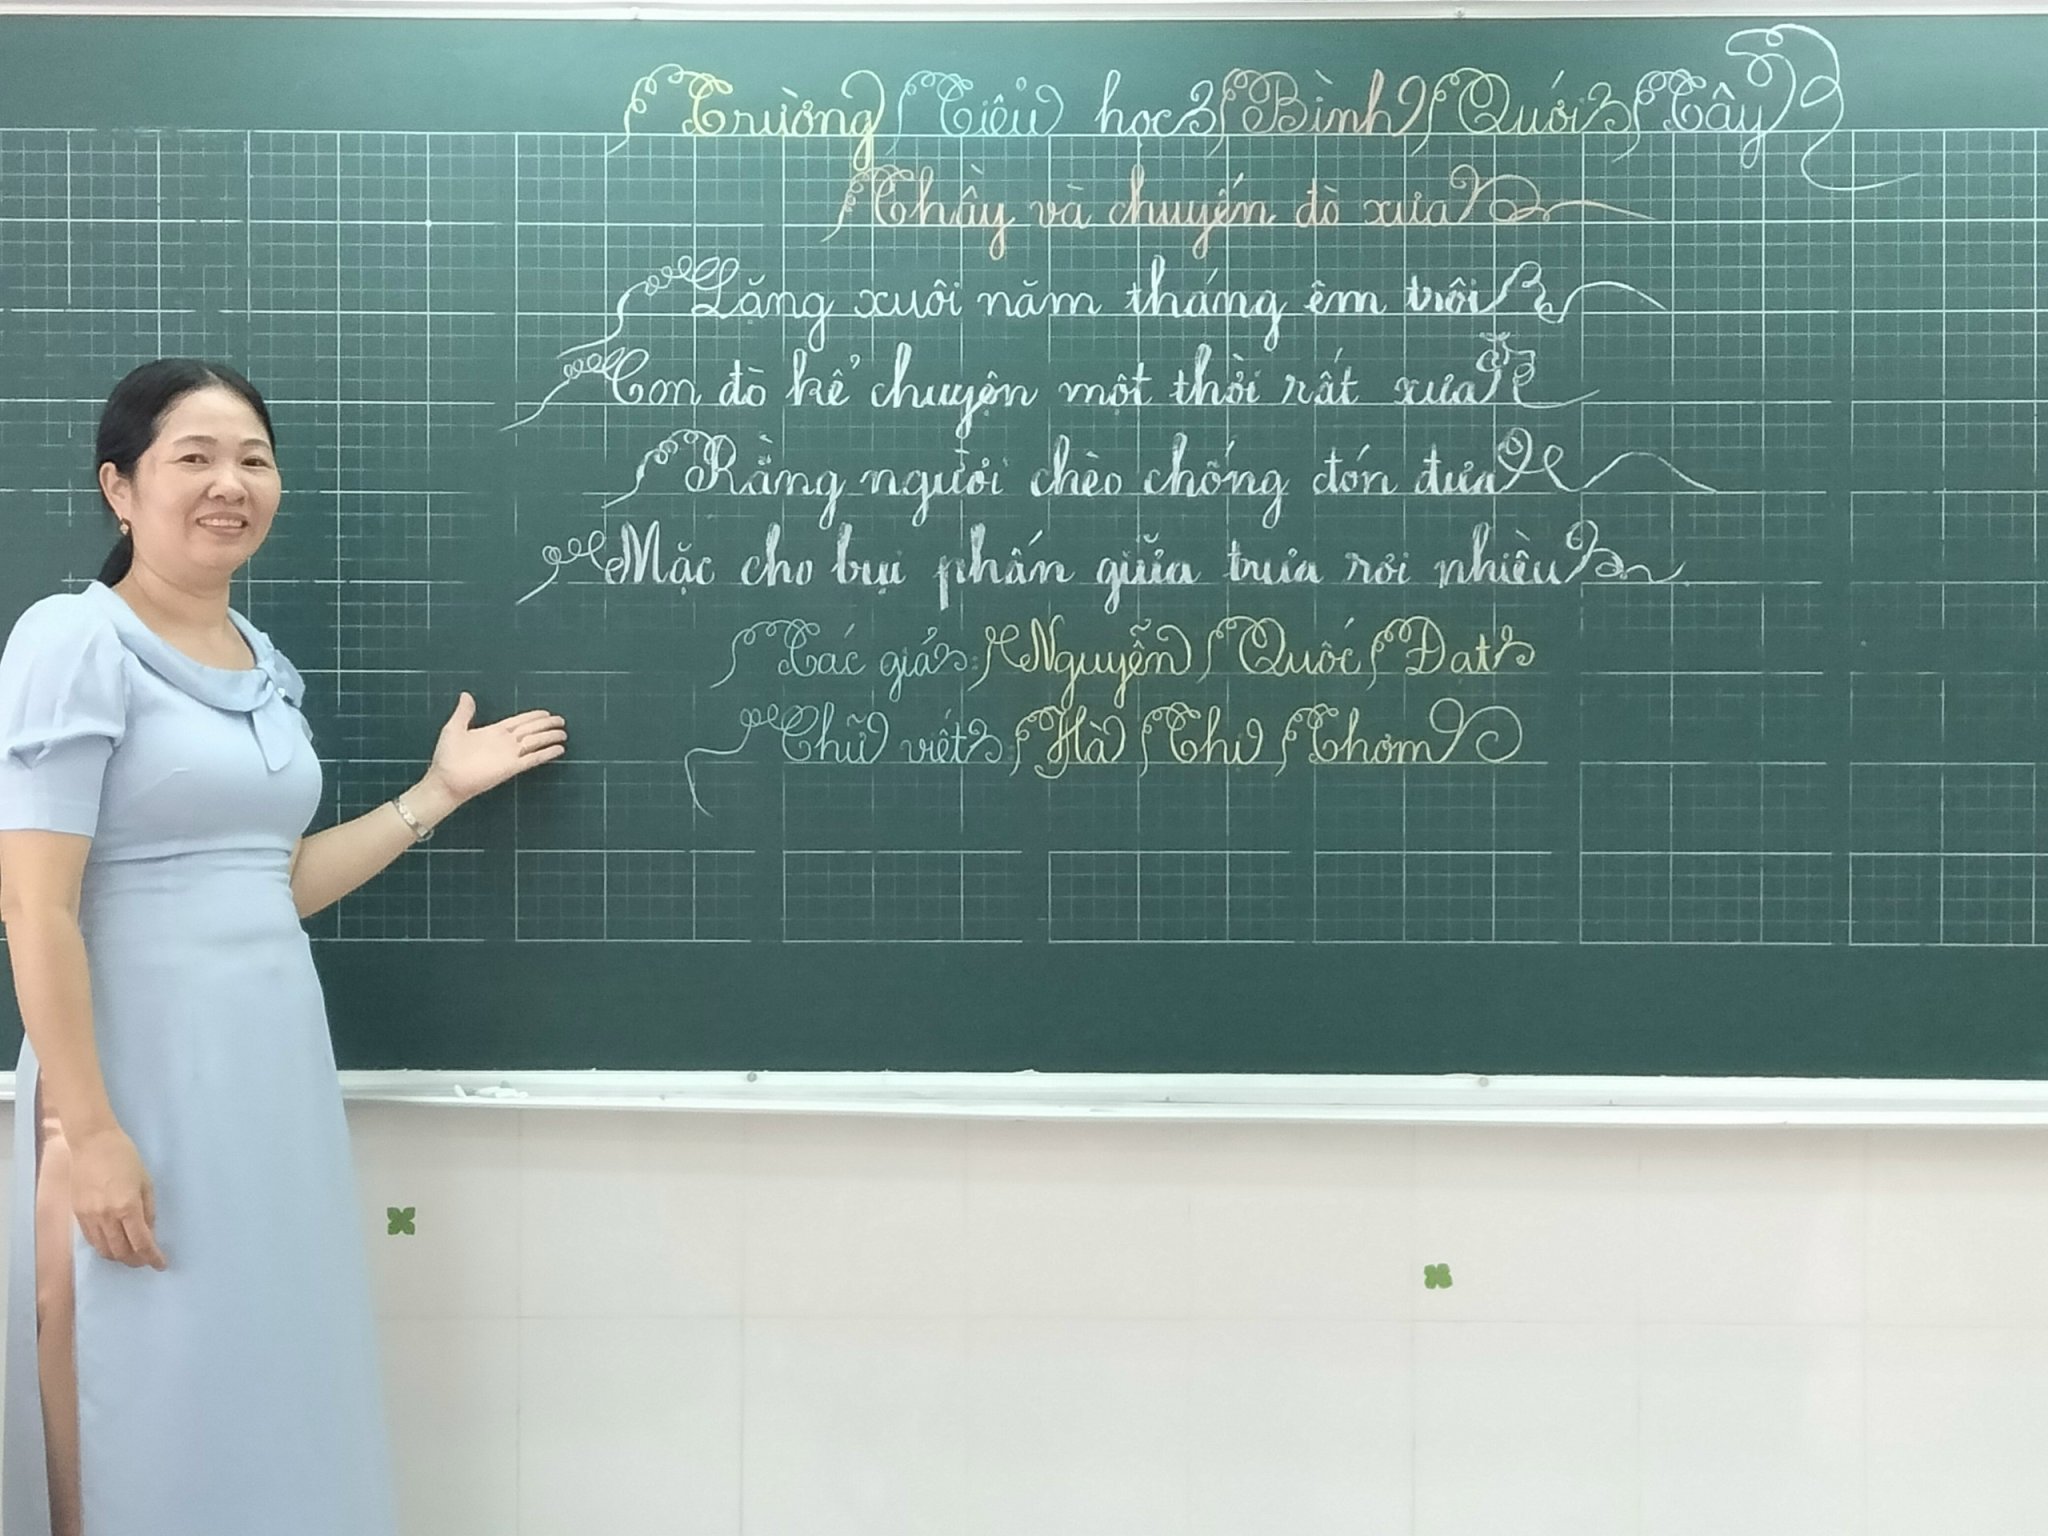 Trường Tiểu học Bình Quới Tây
Thầy và chuyến đò xưa
Lặng xuôi năm tháng êm trôi
Con đò kể chuyện một thời rất xưa
Rằng người chèo chống đón đưa
Mặc cho bụi phấn giữa trưa rơi nhiều
Tác giả: Nguyễn Quốc Đạt
Chữ viết: Hà Thị Thơm